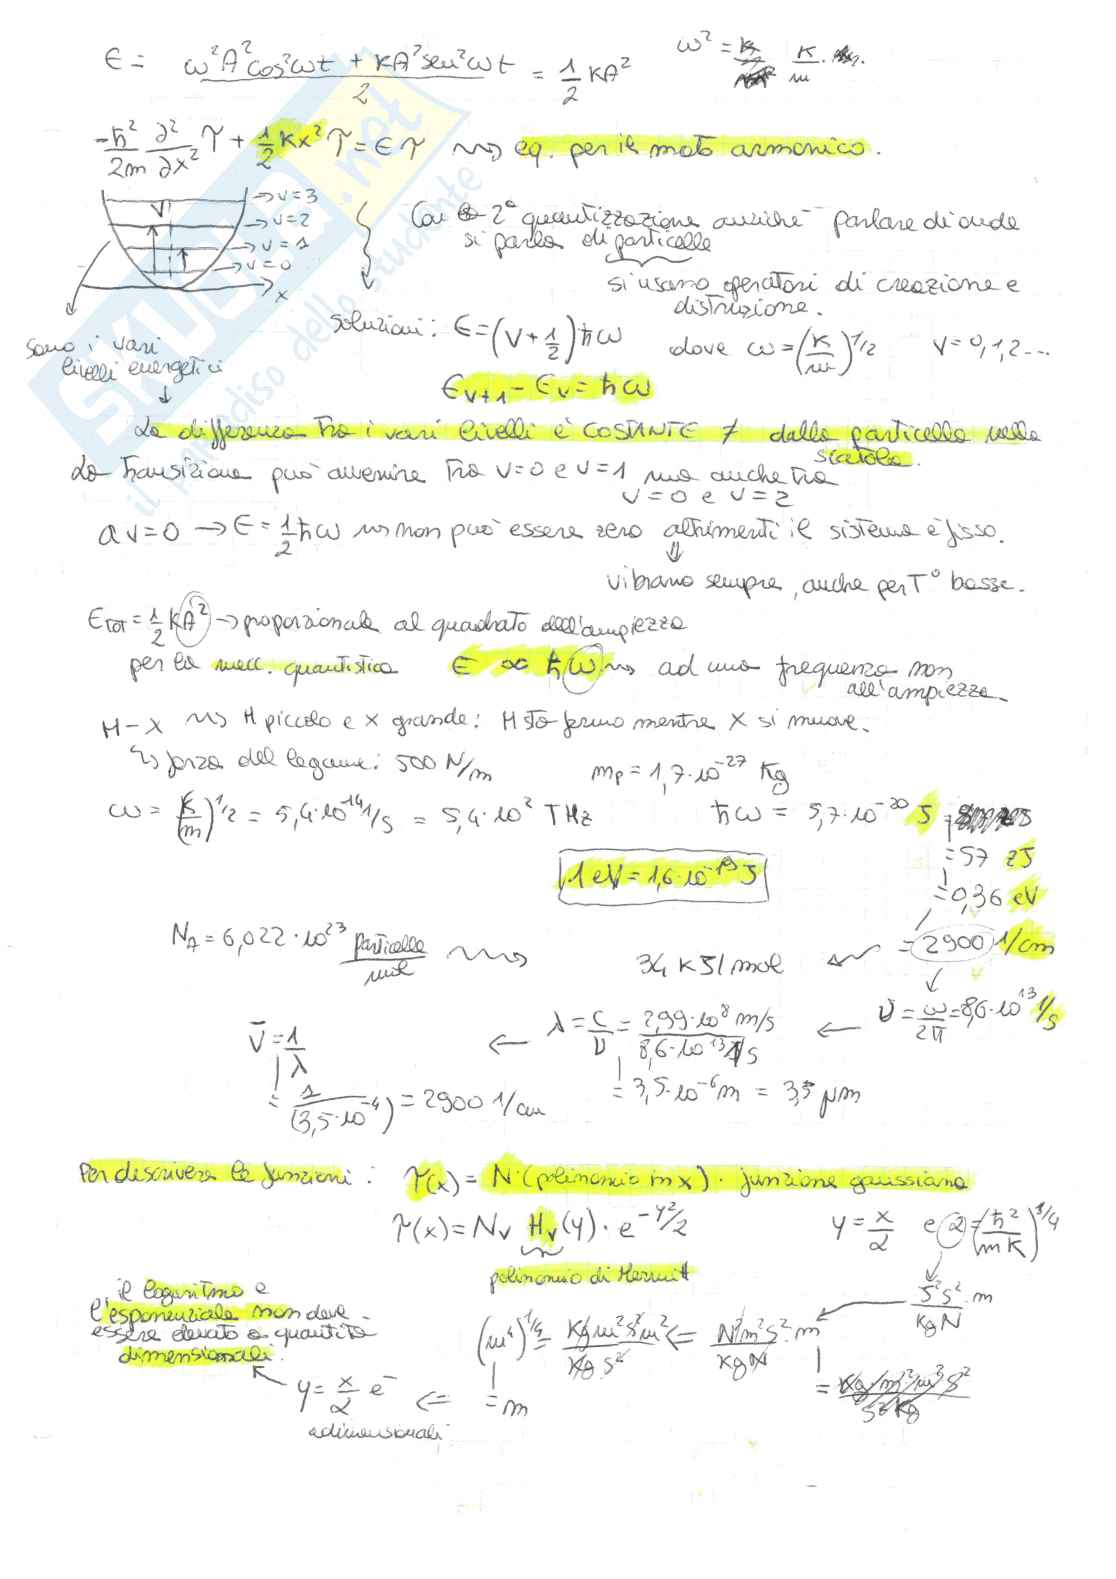 E = ω²A²cos²ωt + KA²sen²ωt / 2 = 1/2 KA²   ω² = K/m
-ħ²/2m ∂²/∂x² Ψ + 1/2 Kx² Ψ = E Ψ ⇝ eq. per il moto armonico.
→ v=3
→ v=2
→ v=1
→ v=0
V
x
Con 2° quantizzazione anziché parlare di onde
si parla di particelle
si usano operatori di creazione e
distruzione.
sono i vari
livelli energetici
soluzioni: E = (v + 1/2) ħω   dove ω = (K/m)^1/2   v = 0,1,2...
E v+1 - E v = ħω
La differenza tra i vari livelli è COSTANTE ≠ dalla particella nella
scatola.
La transizione può avvenire tra v=0 e v=1 ma anche tra
v=0 e v=2
a v=0 → E = 1/2 ħω ⇝ non può essere zero altrimenti il sistema è fisso.
⇓
vibrano sempre, anche per T° basse.
E TOT = 1/2 KA² → proporzionale al quadrato dell'ampiezza
per la mecc. quantistica E ∝ ħω ⇝ ad una frequenza non
all'ampiezza.
H-X ⇝ H piccolo e X grande: H sta fermo mentre X si muove.
↳ forza del legame: 500 N/m   mp = 1,7·10⁻²⁷ Kg
ω = (K/m)^1/2 = 5,4·10⁻¹⁴ 1/s = 5,4·10² THz   ħω = 5,7·10⁻²⁰ J
= 57 zJ
1 eV = 1,6·10⁻¹⁹ J
= 0,36 eV
N_A = 6,022·10²³ particelle/mol ⇝ 34 KJ/mol ← = 2900 1/cm
ν̄ = 1/λ ← λ = c/ν = 2,99·10⁸ m/s / 8,6·10¹³ 1/s ← ν = ω/2π = 8,6·10¹³ 1/s
= 1/(3,5·10⁻⁴) = 2900 1/cm   = 3,5·10⁻⁶ m = 3,5 μm
Per descrivere le funzioni: Ψ(x) = N·(polinomio in x)· funzione gaussiana
Ψ(x) = Nv Hv(y)· e^-y²/2   y = x/α   e α = (ħ²/mK)^1/4
polinomio di Hermit
il logaritmo e
l'esponenziale non deve
essere elevato a quantità
dimensionali.
J²s²·m / Kg N
(m⁴)^1/4 = Kg m² s² m² / Kg s² ⇐ N² m² s²·m / Kg N
y = x/α e⁻ ⇐ = m
adimensionali